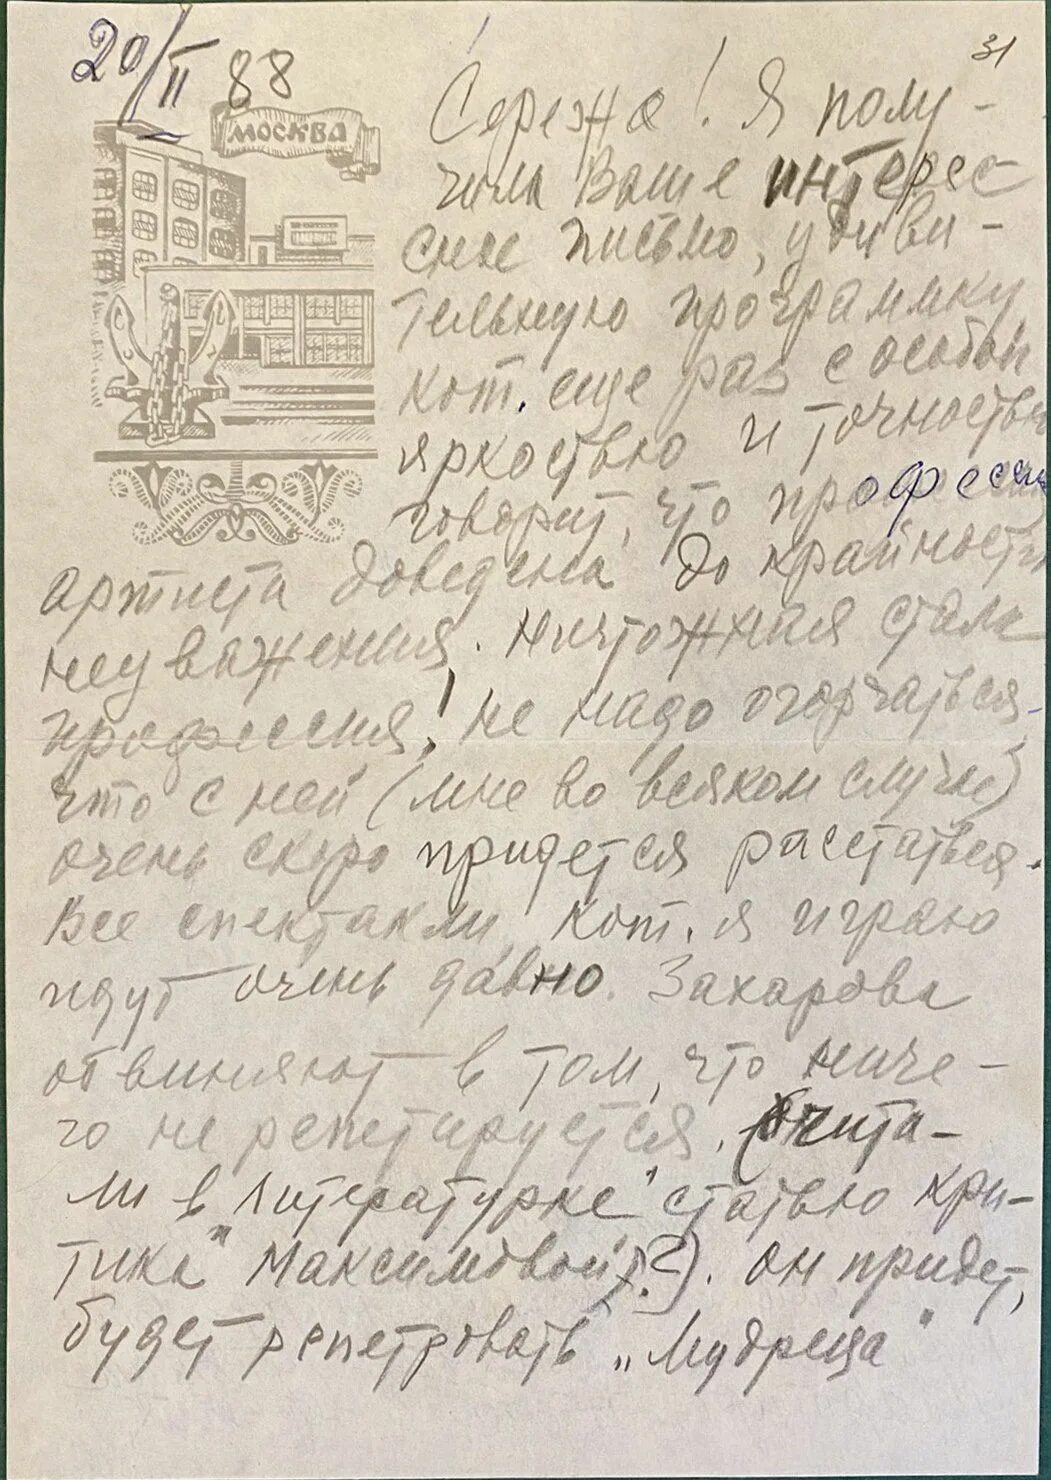 20/II 88
31
МОСКВА
Сережа! Я полу-
чила Ваше интерес
сное письмо, удиви-
тельную программку,
кот. еще раз с особой
яркостью и точностью
говорит, что профессия
артиста доведена до крайности
неуважения. Ничтожная стала
профессия! Не надо огорчаться,
что с ней (мне во всяком случае)
очень скоро придется расстаться.
Все спектакли, кот. я играю
идут очень давно. Захарова
обвиняют в том, что ниче-
го не репетируется. (Чита-
ли в "Литературке" статью кри-
тика Максимовой?). Он придет,
будет репетровать "Мудреца"